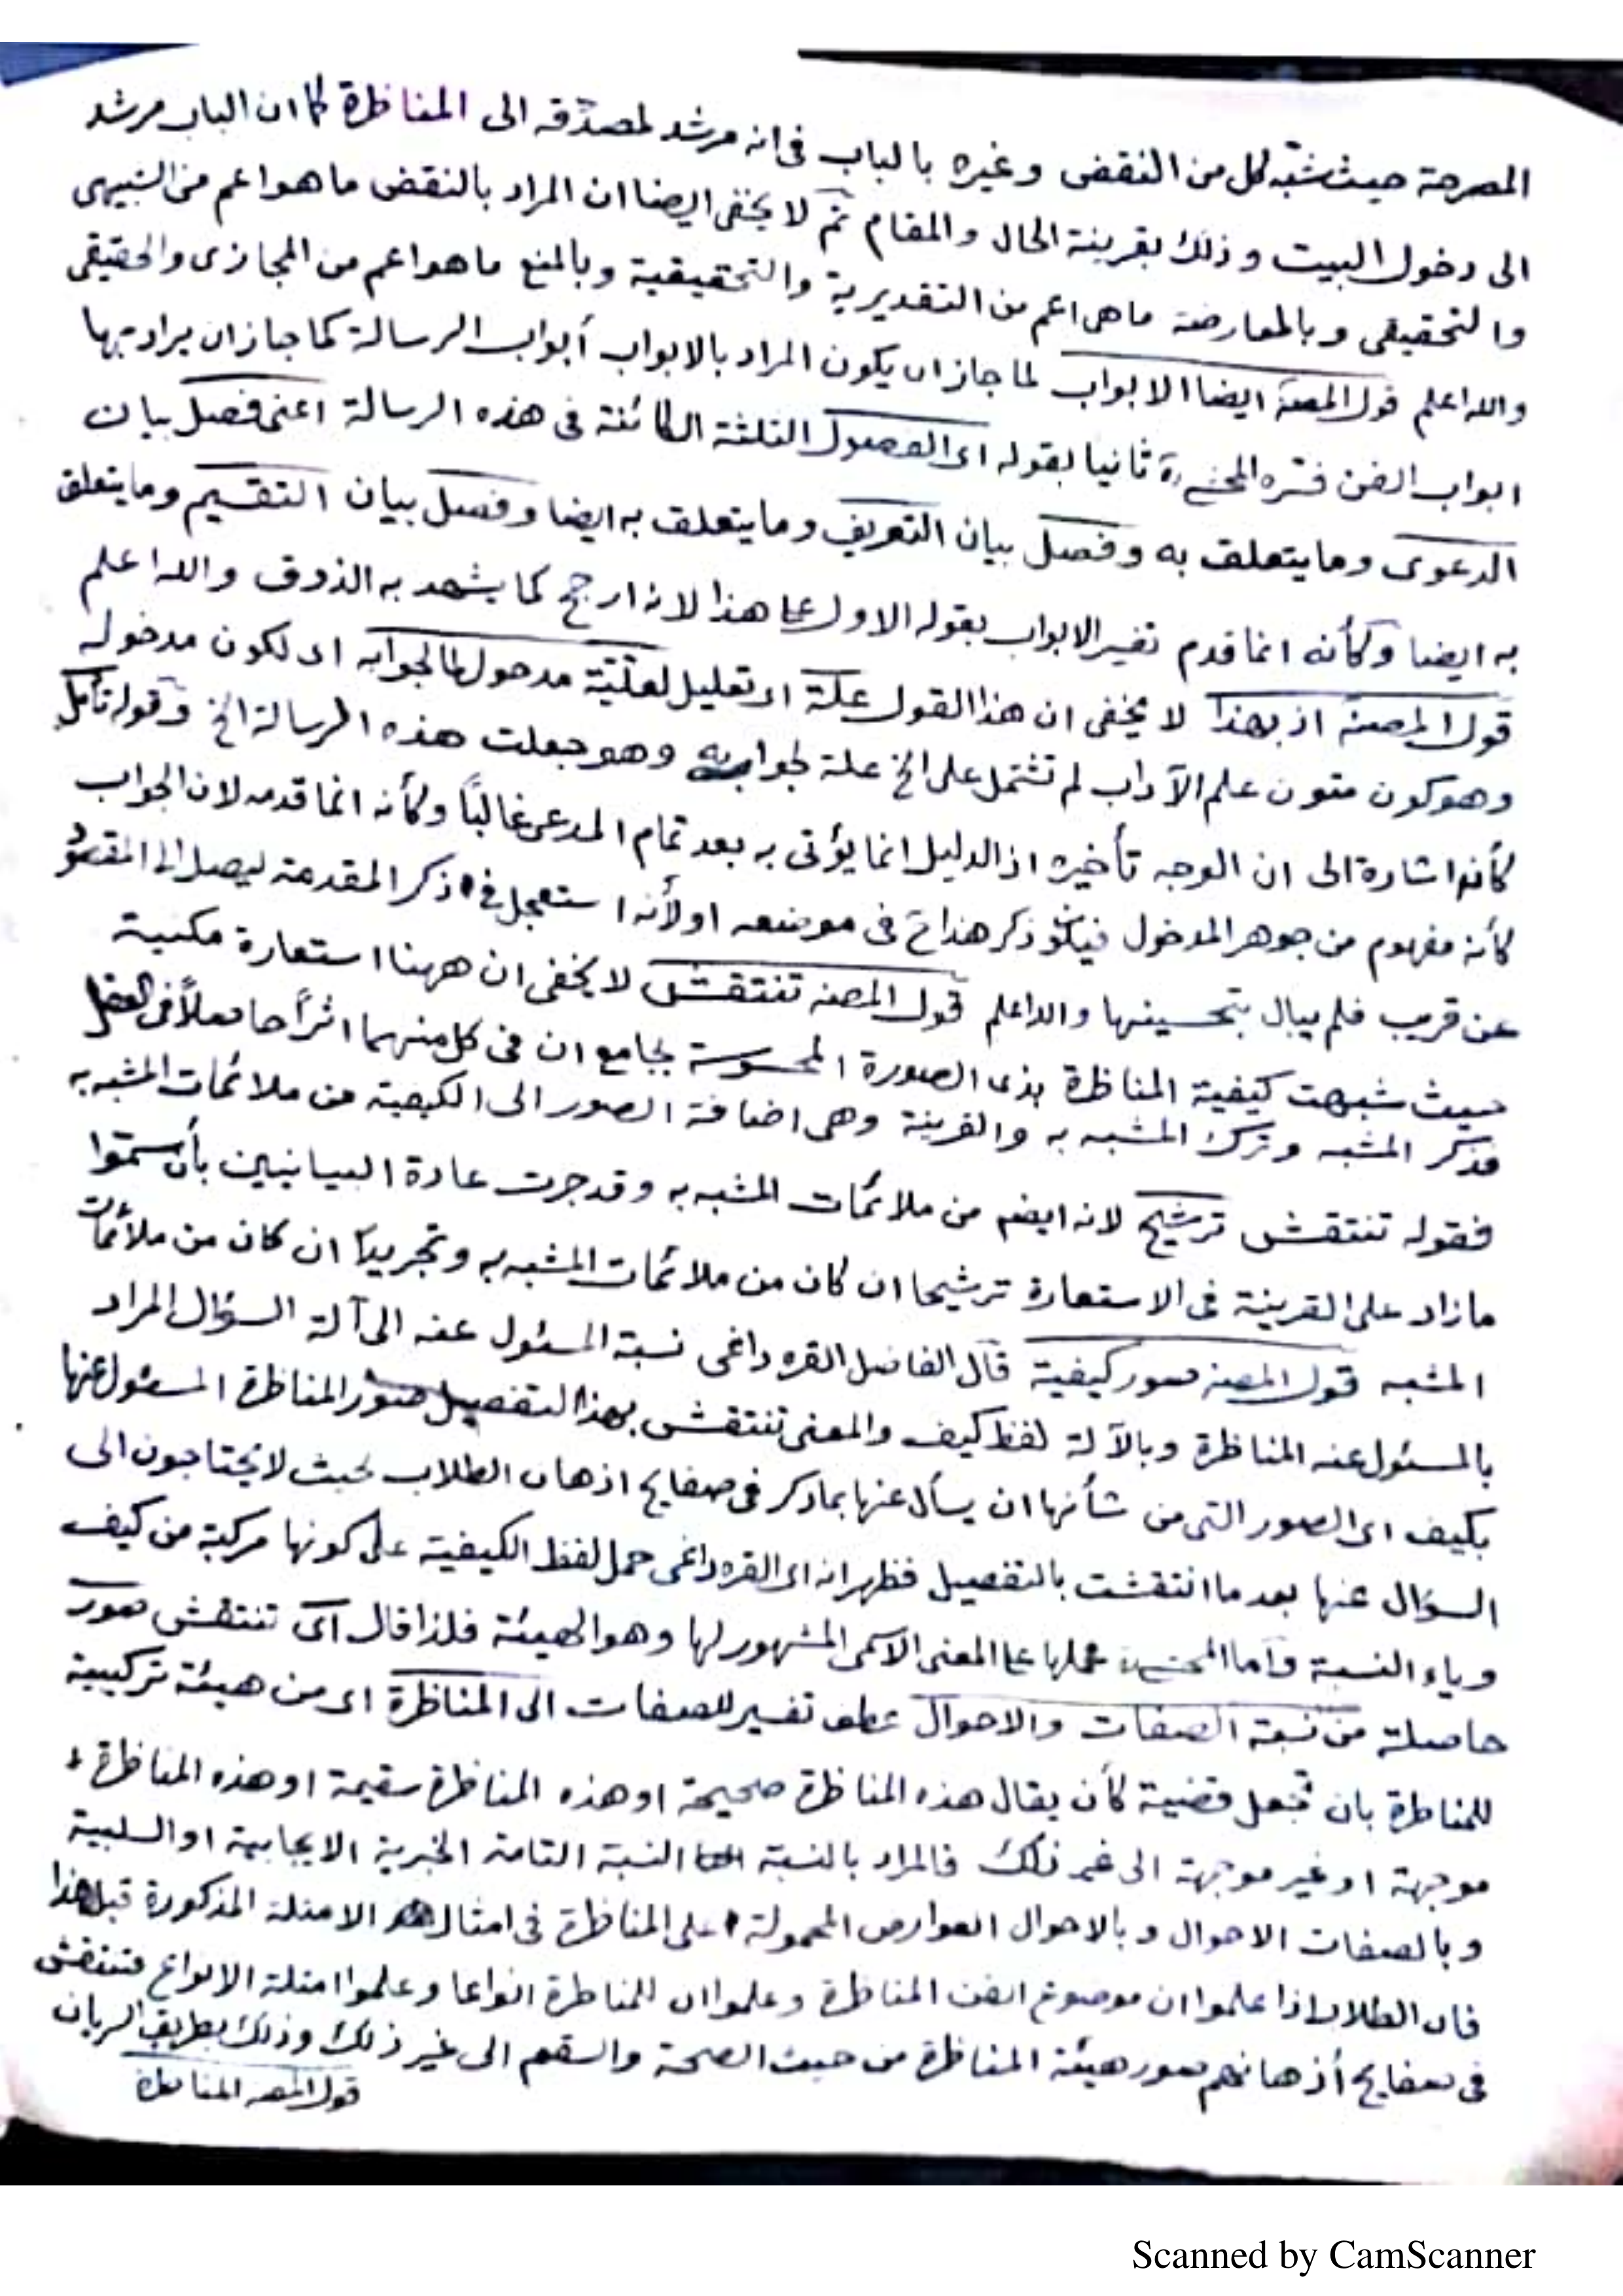 المصرحة حيث شبّه كل من النقض وغيره بالباب فى انه مرشد لمصدّقه الى المناظرة كما ان الباب مرشد
الى دخول البيت وذلك بقرينة الحال والمقام ثم لا يخفى ايضا ان المراد بالنقض ما هو اعم من الشبيهى
والتحقيقى وبالمعارضة ما هى اعم من التقديرية والتحقيقية وبالمنع ما هو اعم من المجازى والحقيقى
والله اعلم قول المصنة ايضا الابواب لما جاز ان يكون المراد بالابواب أبواب الرسالة كما جاز ان يراد بها
ابواب الفن فسّره ثانيا بقوله اى الفصول الثلثة الكائنة فى هذه الرسالة اعنى فصل بيان
الدعوى وما يتعلق به وفصل بيان التعريف وما يتعلق به ايضا وفصل بيان التقسيم وما يتعلق
به ايضا وكأنه انما قدم تفسير الابواب بقوله الاول على هذا لانه ارجح كما يشهد به الذوق والله اعلم
قول المصنة اذ بهذا لا يخفى ان هذا القول علة اى تعليل لعلّيّة مدخول لما لجوابه اى لكون مدخوله
وهو كون متون علم الآداب لم تشتمل على الخ علة لجوابه وهو جعلت هذه الرسالة الخ وقوله تأمل
كأنه اشارة الى ان الوجه تأخيره اذ الدليل انما يؤتى به بعد تمام المدعى غالبًا وكأنه انما قدمه لان الجواب
كأنه مفهوم من جوهر المدخول ذكر هذا فى موضعه او لأنه استعجل فى ذكر المقدمة ليصل الى المقصود
عن قريب فلم يبال بتحسينها والله اعلم قول المصنه تنتقش لا يخفى ان ههنا استعارة مكنية
حيث شبهت كيفية المناظرة بذى الصورة المحسوسة بجامع ان فى كل منهما اثرًا حاصلاً فى العقل
فذكر المشبه وترك المشبه به والقرينة وهى اضافة الصور الى الكيفية من ملائمات المشبه به
فقوله تنتقش ترشيح لانه ايضه من ملائمات المشبه به وقد جرت عادة البيانيين بأن سمّوا
ما زاد على القرينة فى الاستعارة ترشيحا ان كان من ملائمات المشبه به وتجريدًا ان كان من ملائمات
المشبه قول المصنه صور كيفية قال الفاضل القره داغى نسبة المسئول عنه الى آلة السؤال المراد
بالمسئول عنه المناظرة وبالآلة لفظ كيف والمعنى تنتقش بهذا التفصيل صور المناظرة المسئول عنها
بكيف اى الصور التى من شأنها ان يسأل عنها بما ذكر فى صفايح اذهان الطلاب بحيث لا يحتاجون الى
السؤال عنها بعد ما انتقشت بالتفصيل فظهر انه اى القره داغى حمل لفظ الكيفية على كونها مركبة من كيف
وياء النسبة وأما حملها على المعنى الاسمى المشهور لها وهو الهيئة فلذا قال اى تنتقش صور
حاصلة من نسبة الصفات والاحوال عطف تفسير للصفات الى المناظرة اى من هيئة تركيبية
للمناظرة بان تجعل قضية كأن يقال هذه المناظرة صحيحة او هذه المناظرة سقيمة او هذه المناظرة
موجهة او غير موجهة الى غير ذلك فالمراد بالنسبة النسبة التامة الخبرية الايجابية او السلبية
وبالصفات الاحوال وبالاحوال العوارض المحمولة على المناظرة فى امثال الامثلة المذكورة قبل هذا
فان الطلاب اذا علموا ان موضوع الفن المناظرة وعلموا ان للمناظرة انواعا وعلموا امثلة الانواع فتنتقش
فى صفايح أذهانهم صور هيئة المناظرة من حيث الصحة والسقم الى غير ذلك وذلك بطريق السريان
قول المصه المناظرة
Scanned by CamScanner